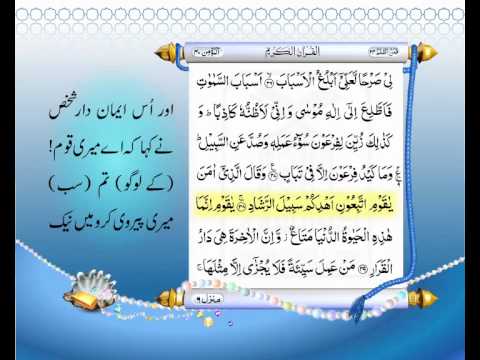 القرآن الكريم
لِىْ صَرْحًا لَّعَلِّىْۤ اَبْلُغُ الْاَسْبَابَ ۙ﴿۳۶﴾ اَسْبَابَ السَّمٰوٰتِ
فَاَطَّلِعَ اِلٰٓى اِلٰهِ مُوْسٰى وَاِنِّىْ لَاَظُنُّهٗ كَاذِبًا ؕ وَ
كَذٰلِكَ زُيِّنَ لِفِرْعَوْنَ سُوْٓءُ عَمَلِهٖ وَصُدَّ عَنِ السَّبِيْلِ ؕ
وَمَا كَيْدُ فِرْعَوْنَ اِلَّا فِىْ تَبَابٍ ﴿۳۷﴾ وَقَالَ الَّذِىْۤ اٰمَنَ
يٰقَوْمِ اتَّبِعُوْنِ اَهْدِكُمْ سَبِيْلَ الرَّشَادِ ۚ﴿۳۸﴾ يٰقَوْمِ اِنَّمَا
هٰذِهِ الْحَيٰوةُ الدُّنْيَا مَتَاعٌ ؗ وَّاِنَّ الْاٰخِرَةَ هِىَ دَارُ
الْقَرَارِ ﴿۳۹﴾ مَنْ عَمِلَ سَيِّئَةً فَلَا يُجْزٰٓى اِلَّا مِثْلَهَا ۚ
منزل ٦
اور اُس ایمان دار شخص
نے کہا کہ اے میری قوم!
(کے لوگو) تم (سب)
میری پیروی کرو میں نیک